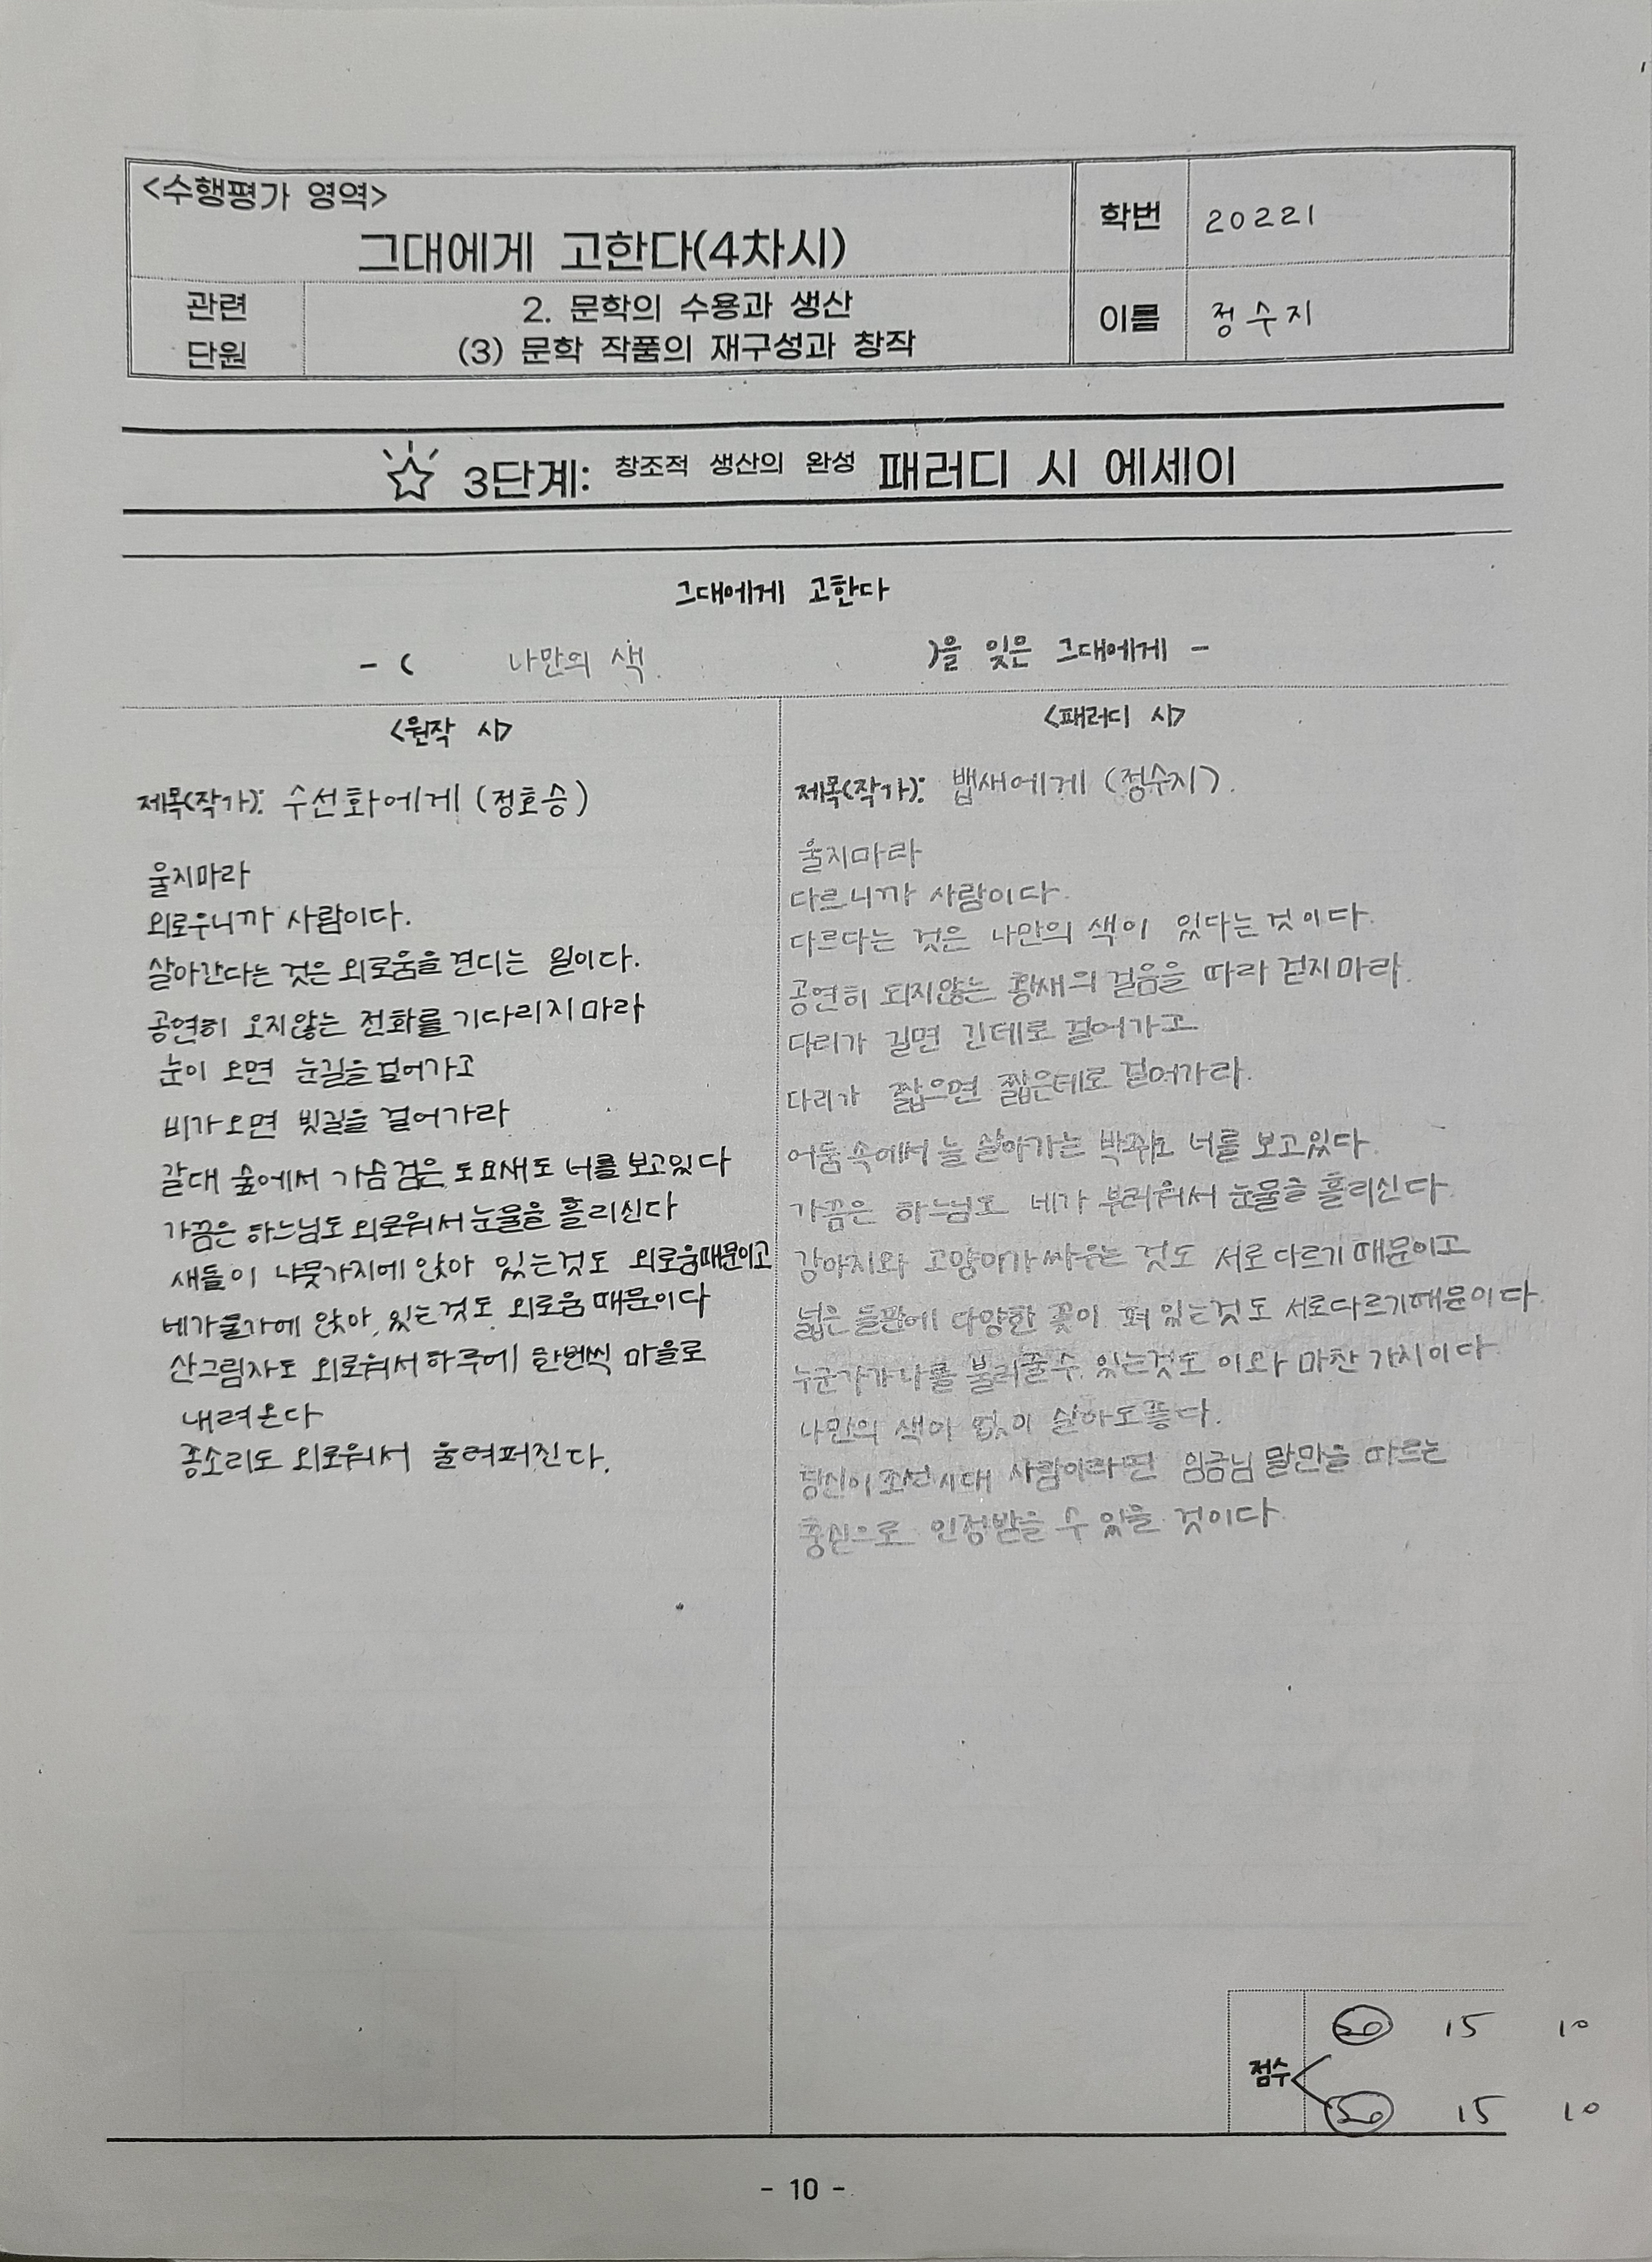 <수행평가 영역>
그대에게 고한다(4차시)
학번 20221
관련 단원
2. 문학의 수용과 생산
(3) 문학 작품의 재구성과 창작
이름 정수지
3단계: 창조적 생산의 완성 패러디 시 에세이
그대에게 고한다
- ( 나만의 색 )을 잊은 그대에게 -
<원작 시>
제목(작가): 수선화에게 (정호승)
울지마라
외로우니까 사람이다.
살아간다는 것은 외로움을 견디는 일이다.
공연히 오지않는 전화를 기다리지마라
눈이 오면 눈길을 걸어가고
비가오면 빗길을 걸어가라
갈대 숲에서 가슴검은 도요새도 너를 보고있다
가끔은 하느님도 외로워서 눈물을 흘리신다
새들이 나뭇가지에 앉아 있는것도 외로움때문이고
네가물가에 앉아 있는것도 외로움때문이다
산그림자도 외로워서 하루에 한번씩 마을로
내려온다
종소리도 외로워서 울려퍼진다.
<패러디 시>
제목(작가): 뱁새에게 (정수지).
울지마라
다르니까 사람이다.
다르다는 것은 나만의 색이 있다는것이다.
공연히 되지않는 황새의 걸음을 따라 걷지마라.
다리가 길면 긴데로 걸어가고
다리가 짧으면 짧은데로 걸어가라.
어둠속에서 늘 살아가는 박쥐도 너를 보고있다.
가끔은 하느님도 네가 부러워서 눈물을 흘리신다.
강아지와 고양이가 싸우는 것도 서로다르기 때문이고
넓은 들판에 다양한 꽃이 펴 있는것도 서로다르기때문이다.
누군가가 나를 불러줄수 있는것도 이와 마찬가지이다.
나만의 색이 없이 살아도 좋다.
당신이 조선시대 사람이라면 임금님 말만을 따르는
충신으로 인정받을 수 있을 것이다.
점수
20 15 10
20 15 10
- 10 -